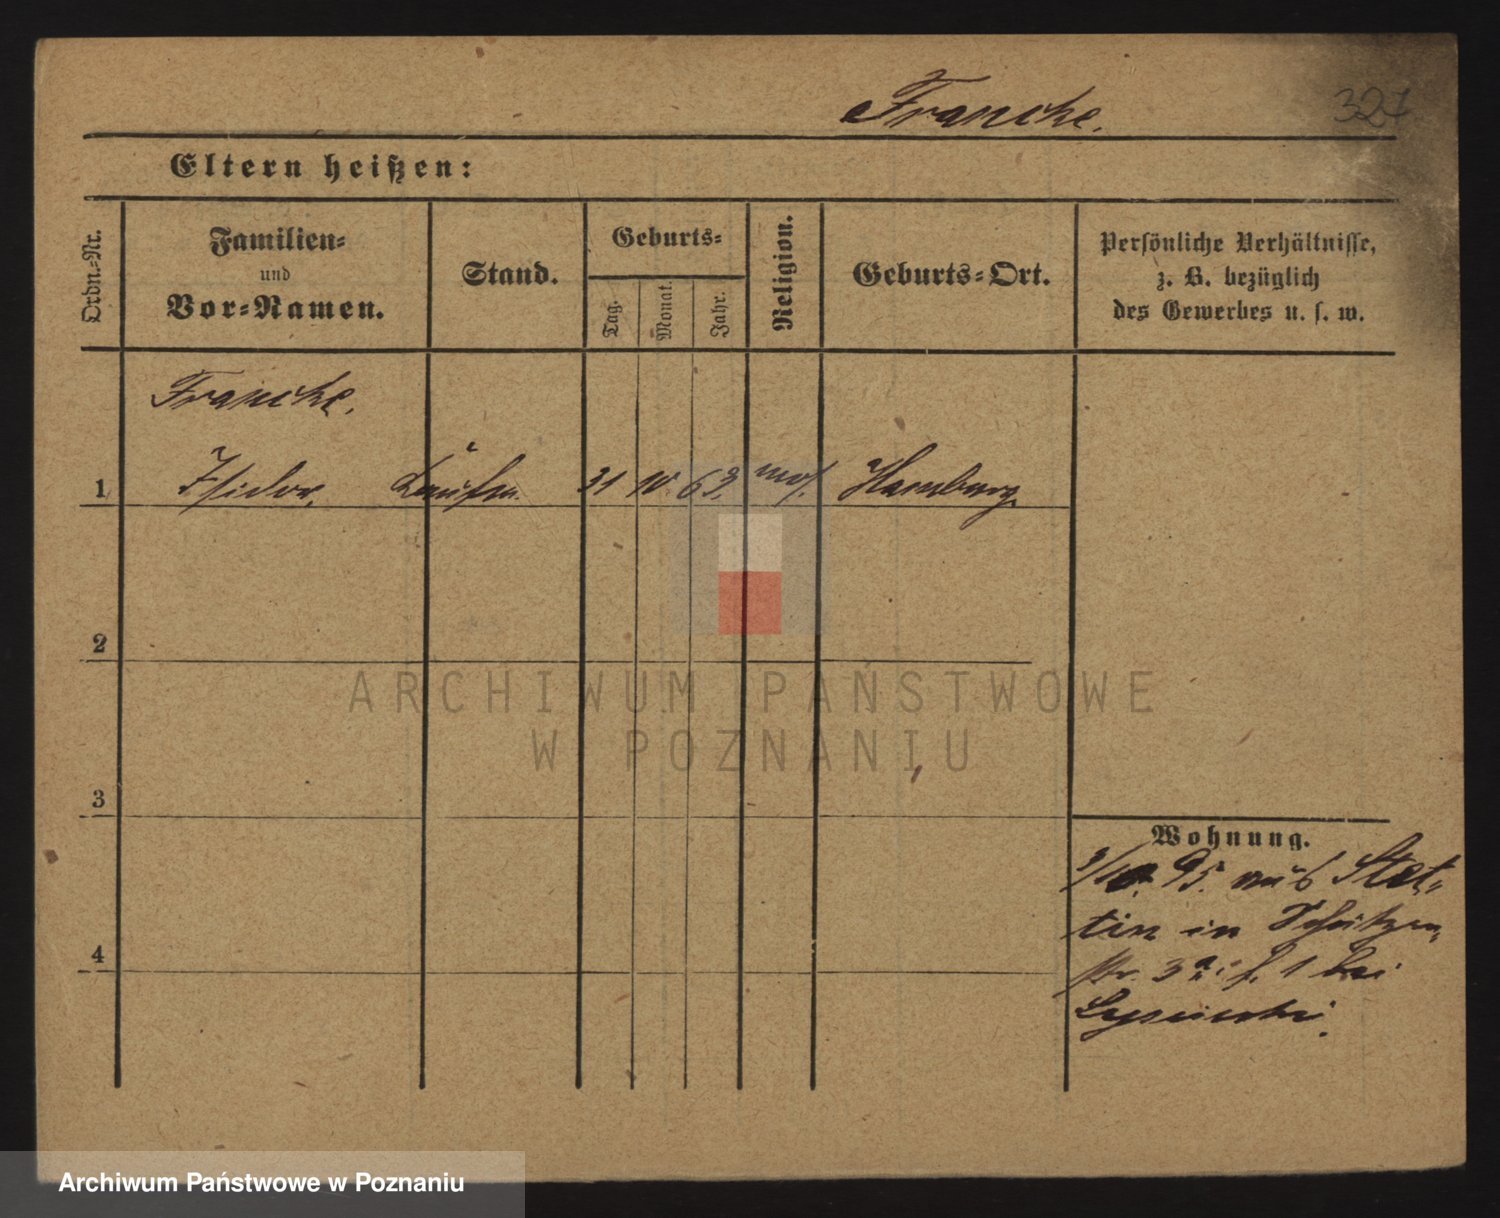 Francke.
327
Eltern heißen:
Ordn.-Nr.
Familien-
und
Vor-Namen.
Stand.
Geburts-
Tag.
Monat.
Jahr.
Religion.
Geburts-Ort.
Persönliche Verhältnisse,
z. B. bezüglich
des Gewerbes u. s. w.
Francke.
1 Isidor, Kaufm. 31 10. 63. mos. Hamburg.
2
ARCHIWUM PAŃSTWOWE
W POZNANIU
3
Wohnung.
3/10. 95. aus Stet-
tin in Schützen-
4
str. 3a: f. 1 bei
Archiwum Państwowe w Poznaniu